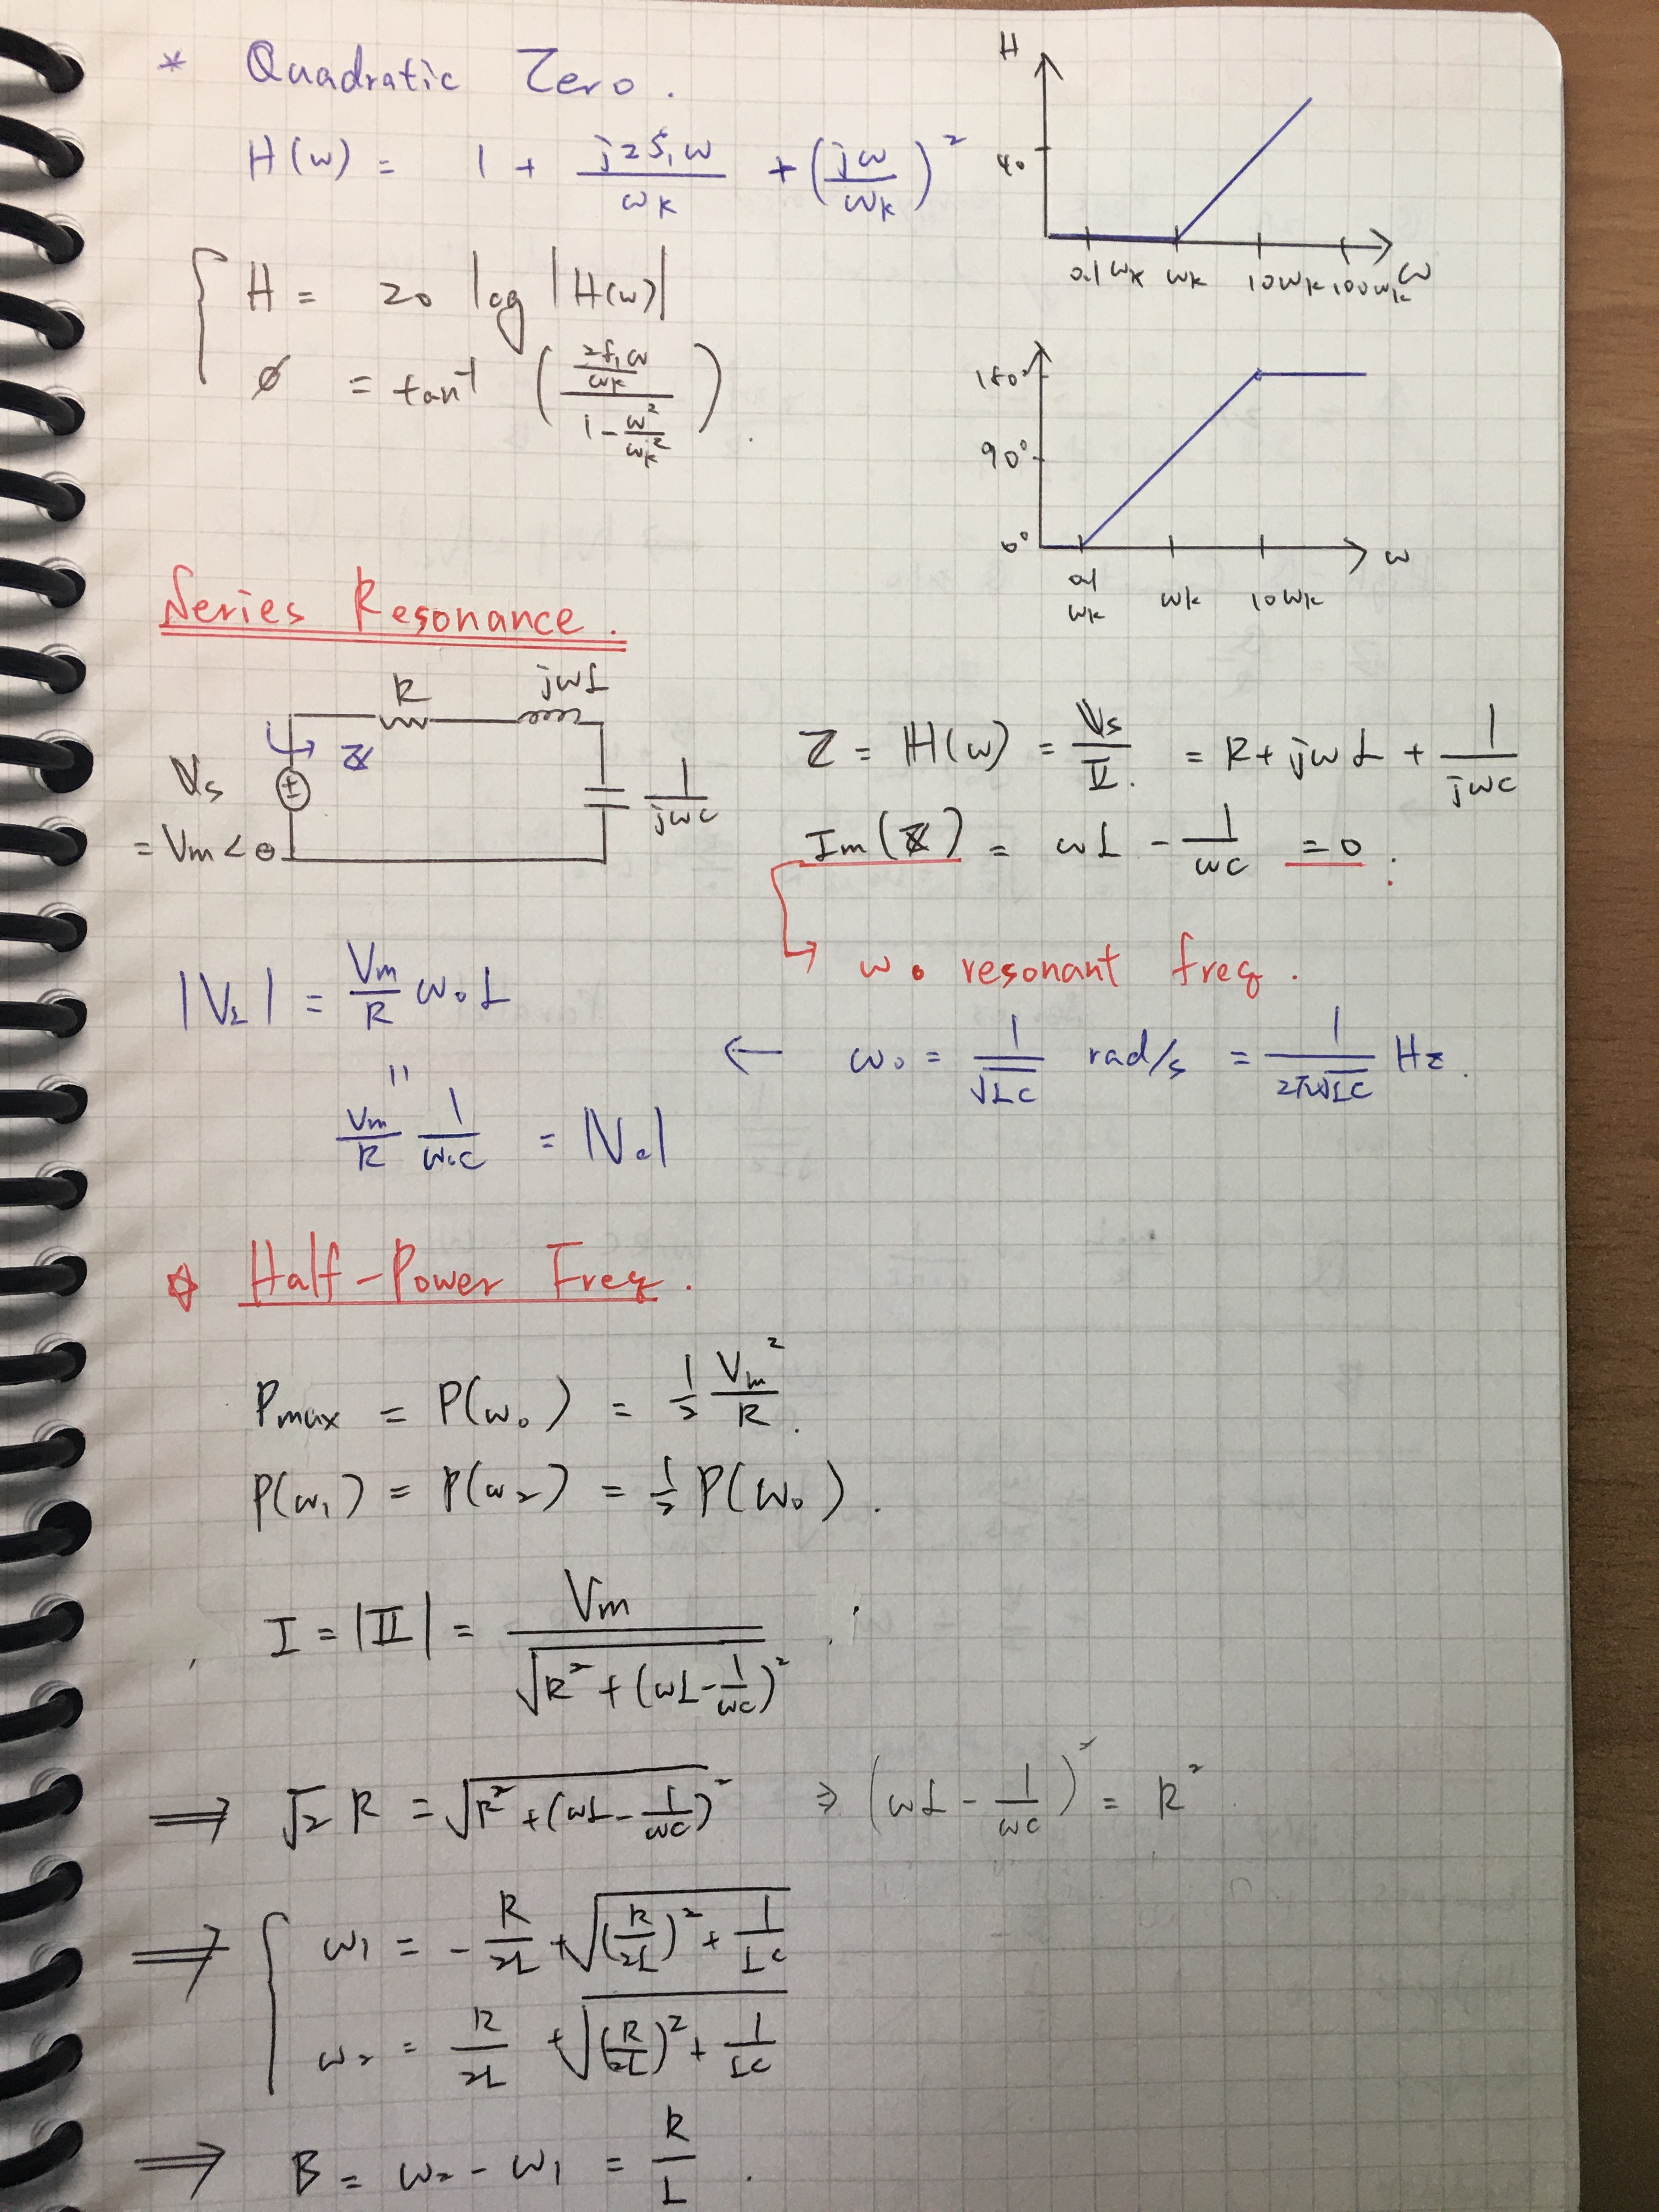 * Quadratic Zero.
H(ω) = 1 + j2ζ₁ω/ωk + (jω/ωk)²
H = 20 log |H(ω)|
ø = tan⁻¹ ( (2ζ₁ω/ωk) / (1 - ω²/ωk²) ).
H
40
0.1ωk ωk 10ωk 100ωk ω
180°
90°
0°
0.1ωk ωk 10ωk ω
Series Resonance.
R jωL
Z
Vs
= Vm<θ
1/jωC
Z = H(ω) = Vs/I. = R + jωL + 1/jωC
Im(Z) = ωL - 1/ωC = 0.
ω₀ resonant freq.
← ω₀ = 1/√LC rad/s = 1/2π√LC Hz.
|VL| = Vm/R ω₀L
"
Vm/R 1/ω₀C = |Vc|
☆ Half-Power Freq.
Pmax = P(ω₀) = 1/2 Vm²/R.
P(ω₁) = P(ω₂) = 1/2 P(ω₀).
I = |I| = Vm / √R² + (ωL - 1/ωC)²
⇒ √2 R = √R² + (ωL - 1/ωC)² ⇒ (ωL - 1/ωC)² = R².
⇒ ω₁ = - R/2L + √(R/2L)² + 1/LC
ω₂ = R/2L + √(R/2L)² + 1/LC
⇒ B = ω₂ - ω₁ = R/L.